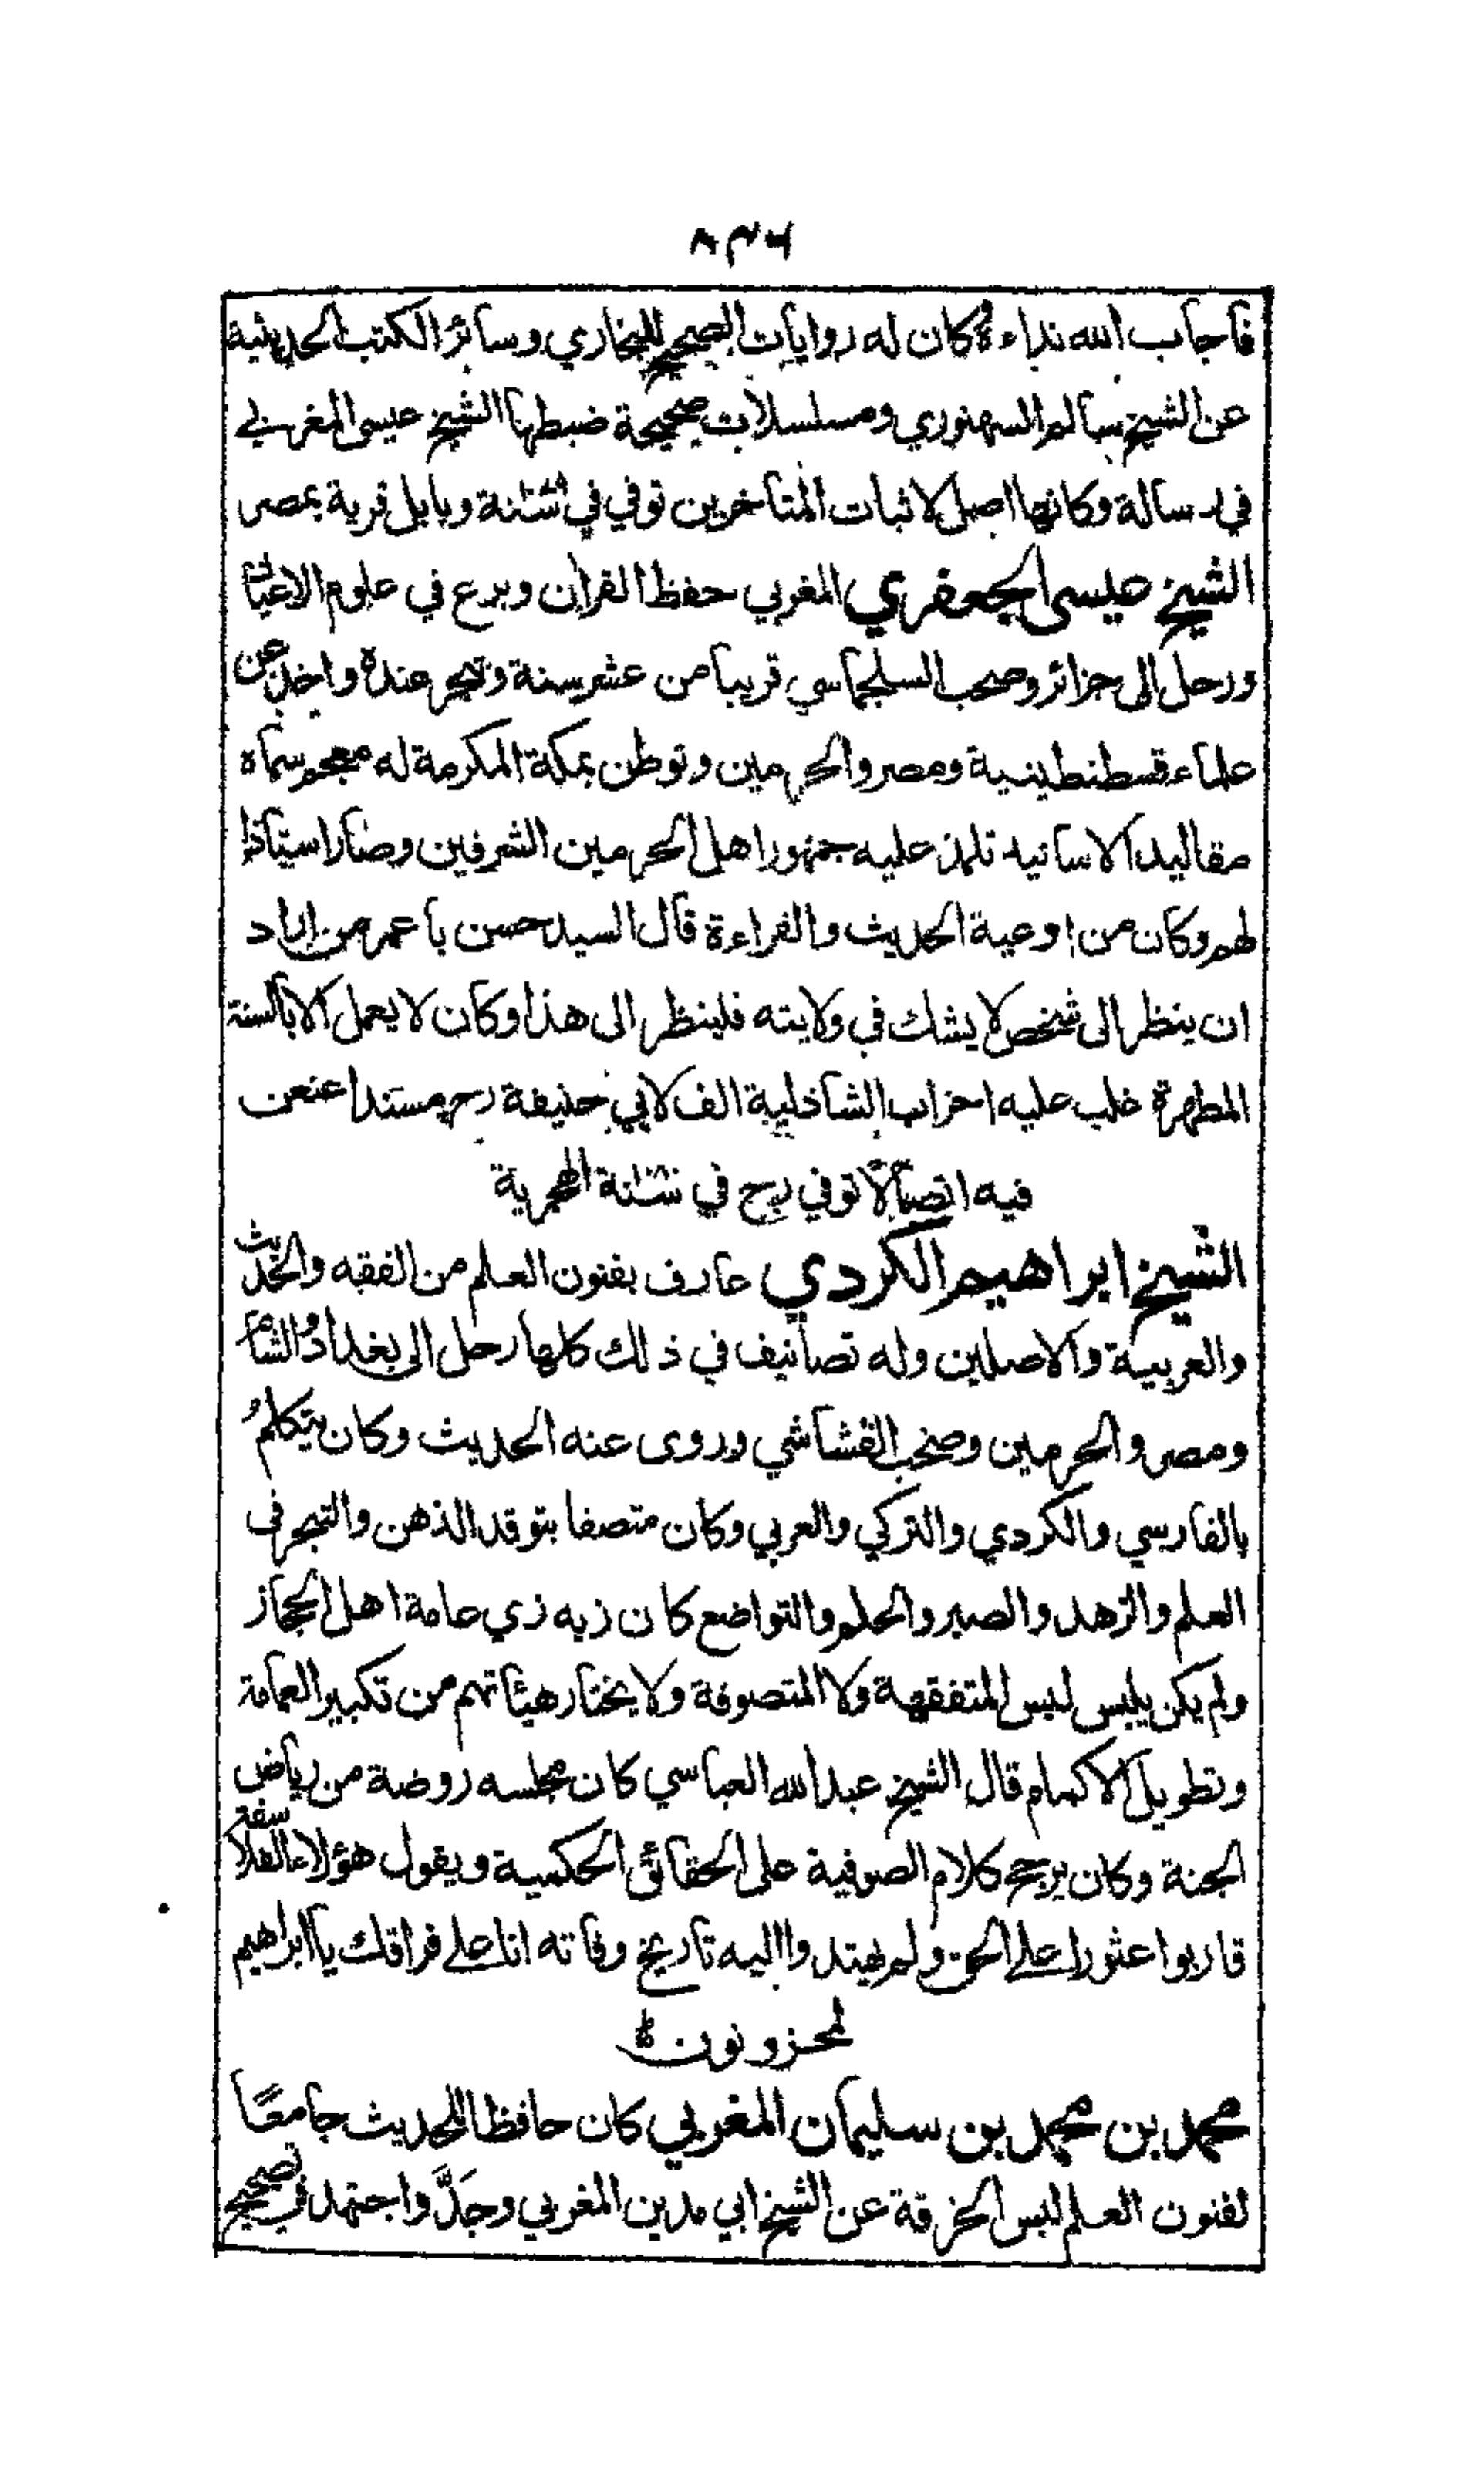 ٨٣٦
فأجاب الله نداءه كان له روايات الصحيح للبخاري وسائر الكتب الحديثية
عن الشيخ سالم السهنوري ومسلسلات صحيحة ضبطها الشيخ عيسى المغربي
في رسالة وكانها اصل لاثبات المتأخرين توفي في سنة وبابل قرية بمصر
الشيخ عيسى الجعفري المغربي حفظ القرآن وبرع في علوم
ورحل الى جزائر وصحب السلجماسي قريبا من عشر سنة وتبحر عنده واخذ عن
علماء قسطنطينية ومصر والحرمين وتوطن بمكة المكرمة له معجم سماه
مقاليد الاسانيد تلمذ عليه جمهور اهل الحرمين الشرفين وصار استاذا
لهم وكان من اوعية الحديث والقراءة قال السيد حسن با عمر من اراد
ان ينظر الى شخص لا يشك في ولايته فلينظر الى هذا وكان لا يعمل الا بالسنة
المطهرة غلب عليه احزاب الشاذلية الف لابي حنيفة رح مسندا عنعن
فيه اتصالا توفي رح في سنة الهجرية
الشيخ ابراهيم الكردي عارف بفنون العلم من الفقه والحديث
والعربية والاصلين وله تصانيف في ذلك كلها رحل الى بغداد والشام
ومصر والحرمين وصحب القشاشي وروى عنه الحديث وكان يتكلم
بالفارسي والكردي والتركي والعربي وكان متصفا بتوقد الذهن والتبحر في
العلم والزهد والصبر والحلم والتواضع كان زيه زي عامة اهل الحجاز
ولم يكن يلبس لبس المتفقهة ولا المتصوفة ولا يختار هيئاتهم من تكبير العمامة
وتطويل الاكمام قال الشيخ عبد الله العباسي كان مجلسه روضة من رياض
الجنة وكان يرجح كلام الصوفية على الحقائق الحكمية ويقول هؤلاء الفلاسفة
قاربوا عثورا على الحق ولم يهتدوا اليه تاريخ وفاته انا على فراقك يا ابراهيم
لمحزونون
محمد بن محمد بن سليمان المغربي كان حافظا للحديث جامعًا
لفنون العلم لبس الخرقة عن الشيخ ابي مدين المغربي وجَدَّ واجتهد في تصحيح